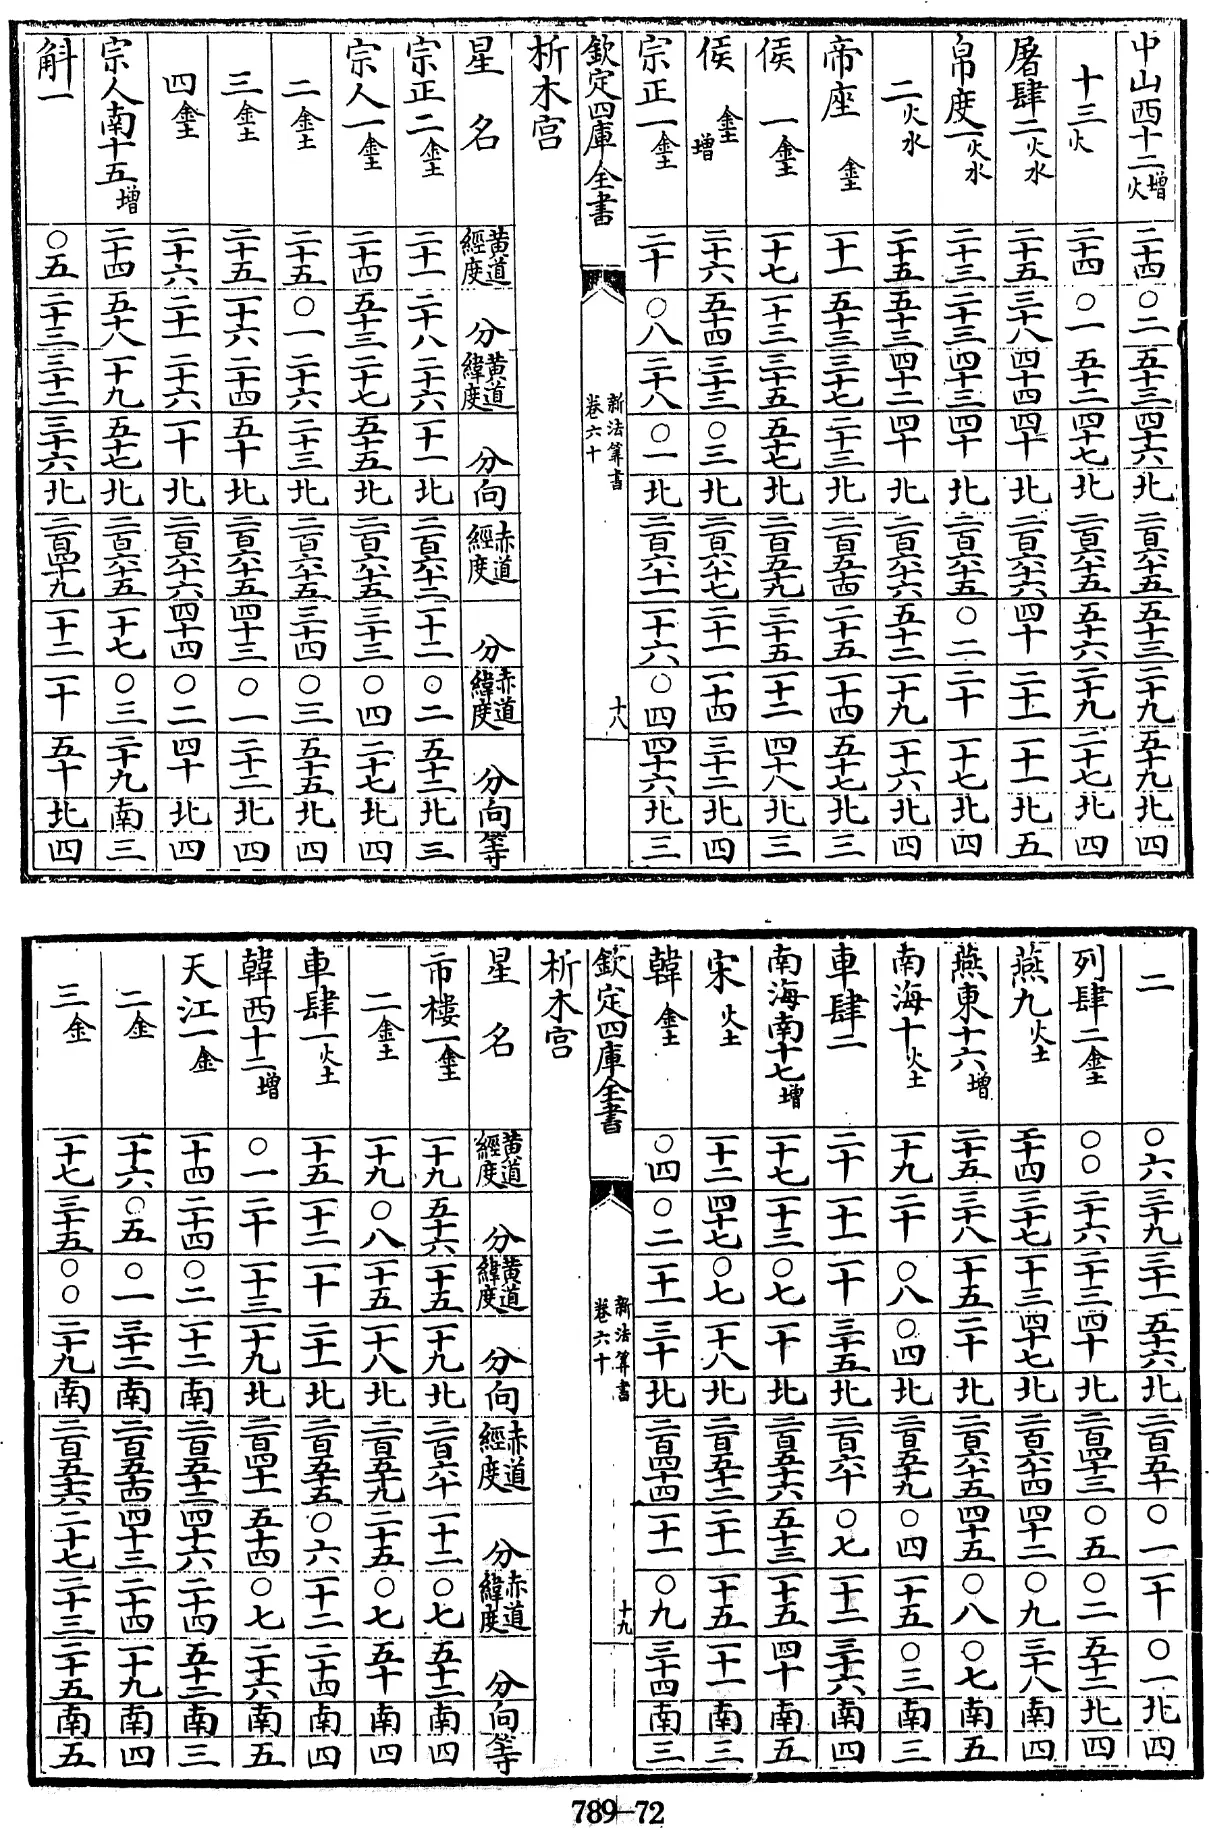 中山西十二增火 二十四 〇二 五十三 四十六 北 二百六十五 五十三 二十九 五十九 北 四
十三火 二十四 〇一 五十二 四十七 北 二百六十五 五十六 二十九 二十七 北 四
屠肆二火水 二十五 三十八 四十四 四十 北 二百六十六 四十 二十一 一十一 北 五
帛度一火水 二十三 二十三 四十三 四十 北 二百六十五 〇二 二十 一十七 北 四
二火水 二十五 五十三 四十二 四十 北 二百六十六 五十二 一十九 一十六 北 四
帝座金土 一十一 五十三 三十七 二十三 北 二百五十四 二十五 一十四 五十七 北 三
侯一金土 一十七 一十三 三十五 五十七 北 二百五十九 三十五 一十二 四十八 北 三
侯金土增 二十六 五十四 三十三 〇三 北 二百六十七 二十一 一十四 三十二 北 四
宗正一金土 二十 〇八 二十八 〇一 北 二百六十一 一十六 〇四 四十六 北 三
欽定四庫全書 新法算書卷六十 十八
析木宮
星名 黃道經度 分 黃道緯度 分 向 赤道經度 分 赤道緯度 分 向 等
宗正二金土 二十一 二十八 二十六 一十一 北 二百六十二 一十二 〇二 五十二 北 三
宗人一金土 二十四 五十三 二十七 五十五 北 二百六十五 三十三 〇四 二十七 北 四
二金土 二十五 〇一 二十六 二十三 北 二百六十五 三十四 〇三 五十五 北 四
三金土 二十五 一十六 二十四 五十 北 二百六十五 四十三 〇一 二十二 北 四
四金土 二十六 二十一 二十六 一十 北 二百六十六 四十四 〇二 四十 北 四
宗人南十五增 二十四 五十八 一十九 五十七 北 二百六十五 一十七 〇三 二十九 南 三
斛一 〇五 二十三 三十二 三十六 北 二百四十九 一十二 一十 五十 北 四
二 〇六 三十九 三十一 五十六 北 二百五十 〇一 一十 〇一 北 四
列肆二金土 〇〇 二十六 二十三 四十 北 二百四十三 〇五 〇二 五十二 北 四
燕九火土 二十四 三十七 一十三 四十七 北 二百六十四 四十二 〇九 三十八 南 四
燕東十六增 二十五 三十八 一十五 二十 北 二百六十五 四十五 〇八 〇七 南 五
南海十火土 一十九 二十 〇八 〇四 北 二百五十九 〇四 一十五 〇三 南 三
車肆二 二十 一十一 一十 三十五 北 二百六十 〇七 一十二 三十六 南 四
南海南十七增 一十七 一十三 〇七 一十 北 二百五十六 五十三 一十五 四十 南 五
宋火土 一十二 四十七 〇七 一十八 北 二百五十二 二十一 一十五 一十一 南 三
韓金土 〇四 〇二 一十一 三十 北 二百四十四 一十一 〇九 三十四 南 三
欽定四庫全書 新法算書卷六十 十九
析木宮
星名 黃道經度 分 黃道緯度 分 向 赤道經度 分 赤道緯度 分 向 等
市樓一金土 一十九 五十六 一十五 一十九 北 二百六十 一十二 〇七 五十二 南 四
二金土 一十九 〇八 一十五 一十八 北 二百五十九 二十五 〇七 五十 南 四
車肆一火土 一十五 一十二 一十 二十一 北 二百五十五 〇六 一十二 二十四 南 四
韓西十二增 〇一 二十 一十三 一十九 北 二百四十一 五十四 〇七 二十六 南 五
天江一金 一十四 二十四 〇二 一十二 南 二百五十二 四十六 二十四 五十二 南 三
二金 一十六 〇五 〇一 三十二 南 二百五十四 四十三 二十四 一十九 南 四
三金 一十七 三十五 〇〇 二十九 南 二百五十六 二十七 二十三 二十五 南 五
789-72